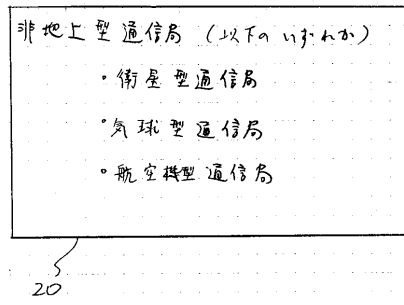 非地上型通信局 (以下のいずれか)
・衛星型通信局
・気球型通信局
・航空機型通信局
20